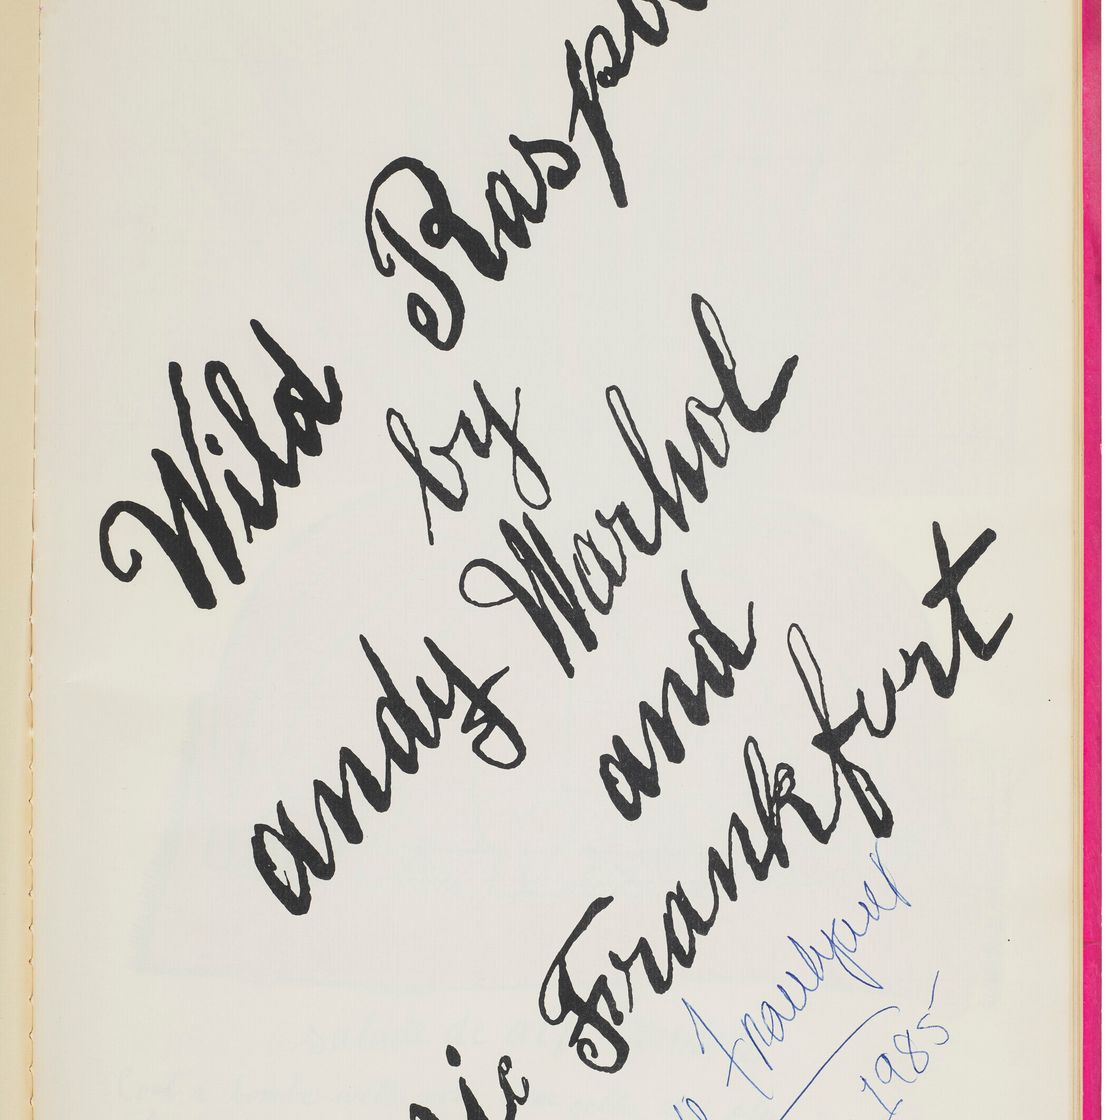 Wild Rasp
by
andy Warhol
and
Frankfurt
Frankfurt
1985